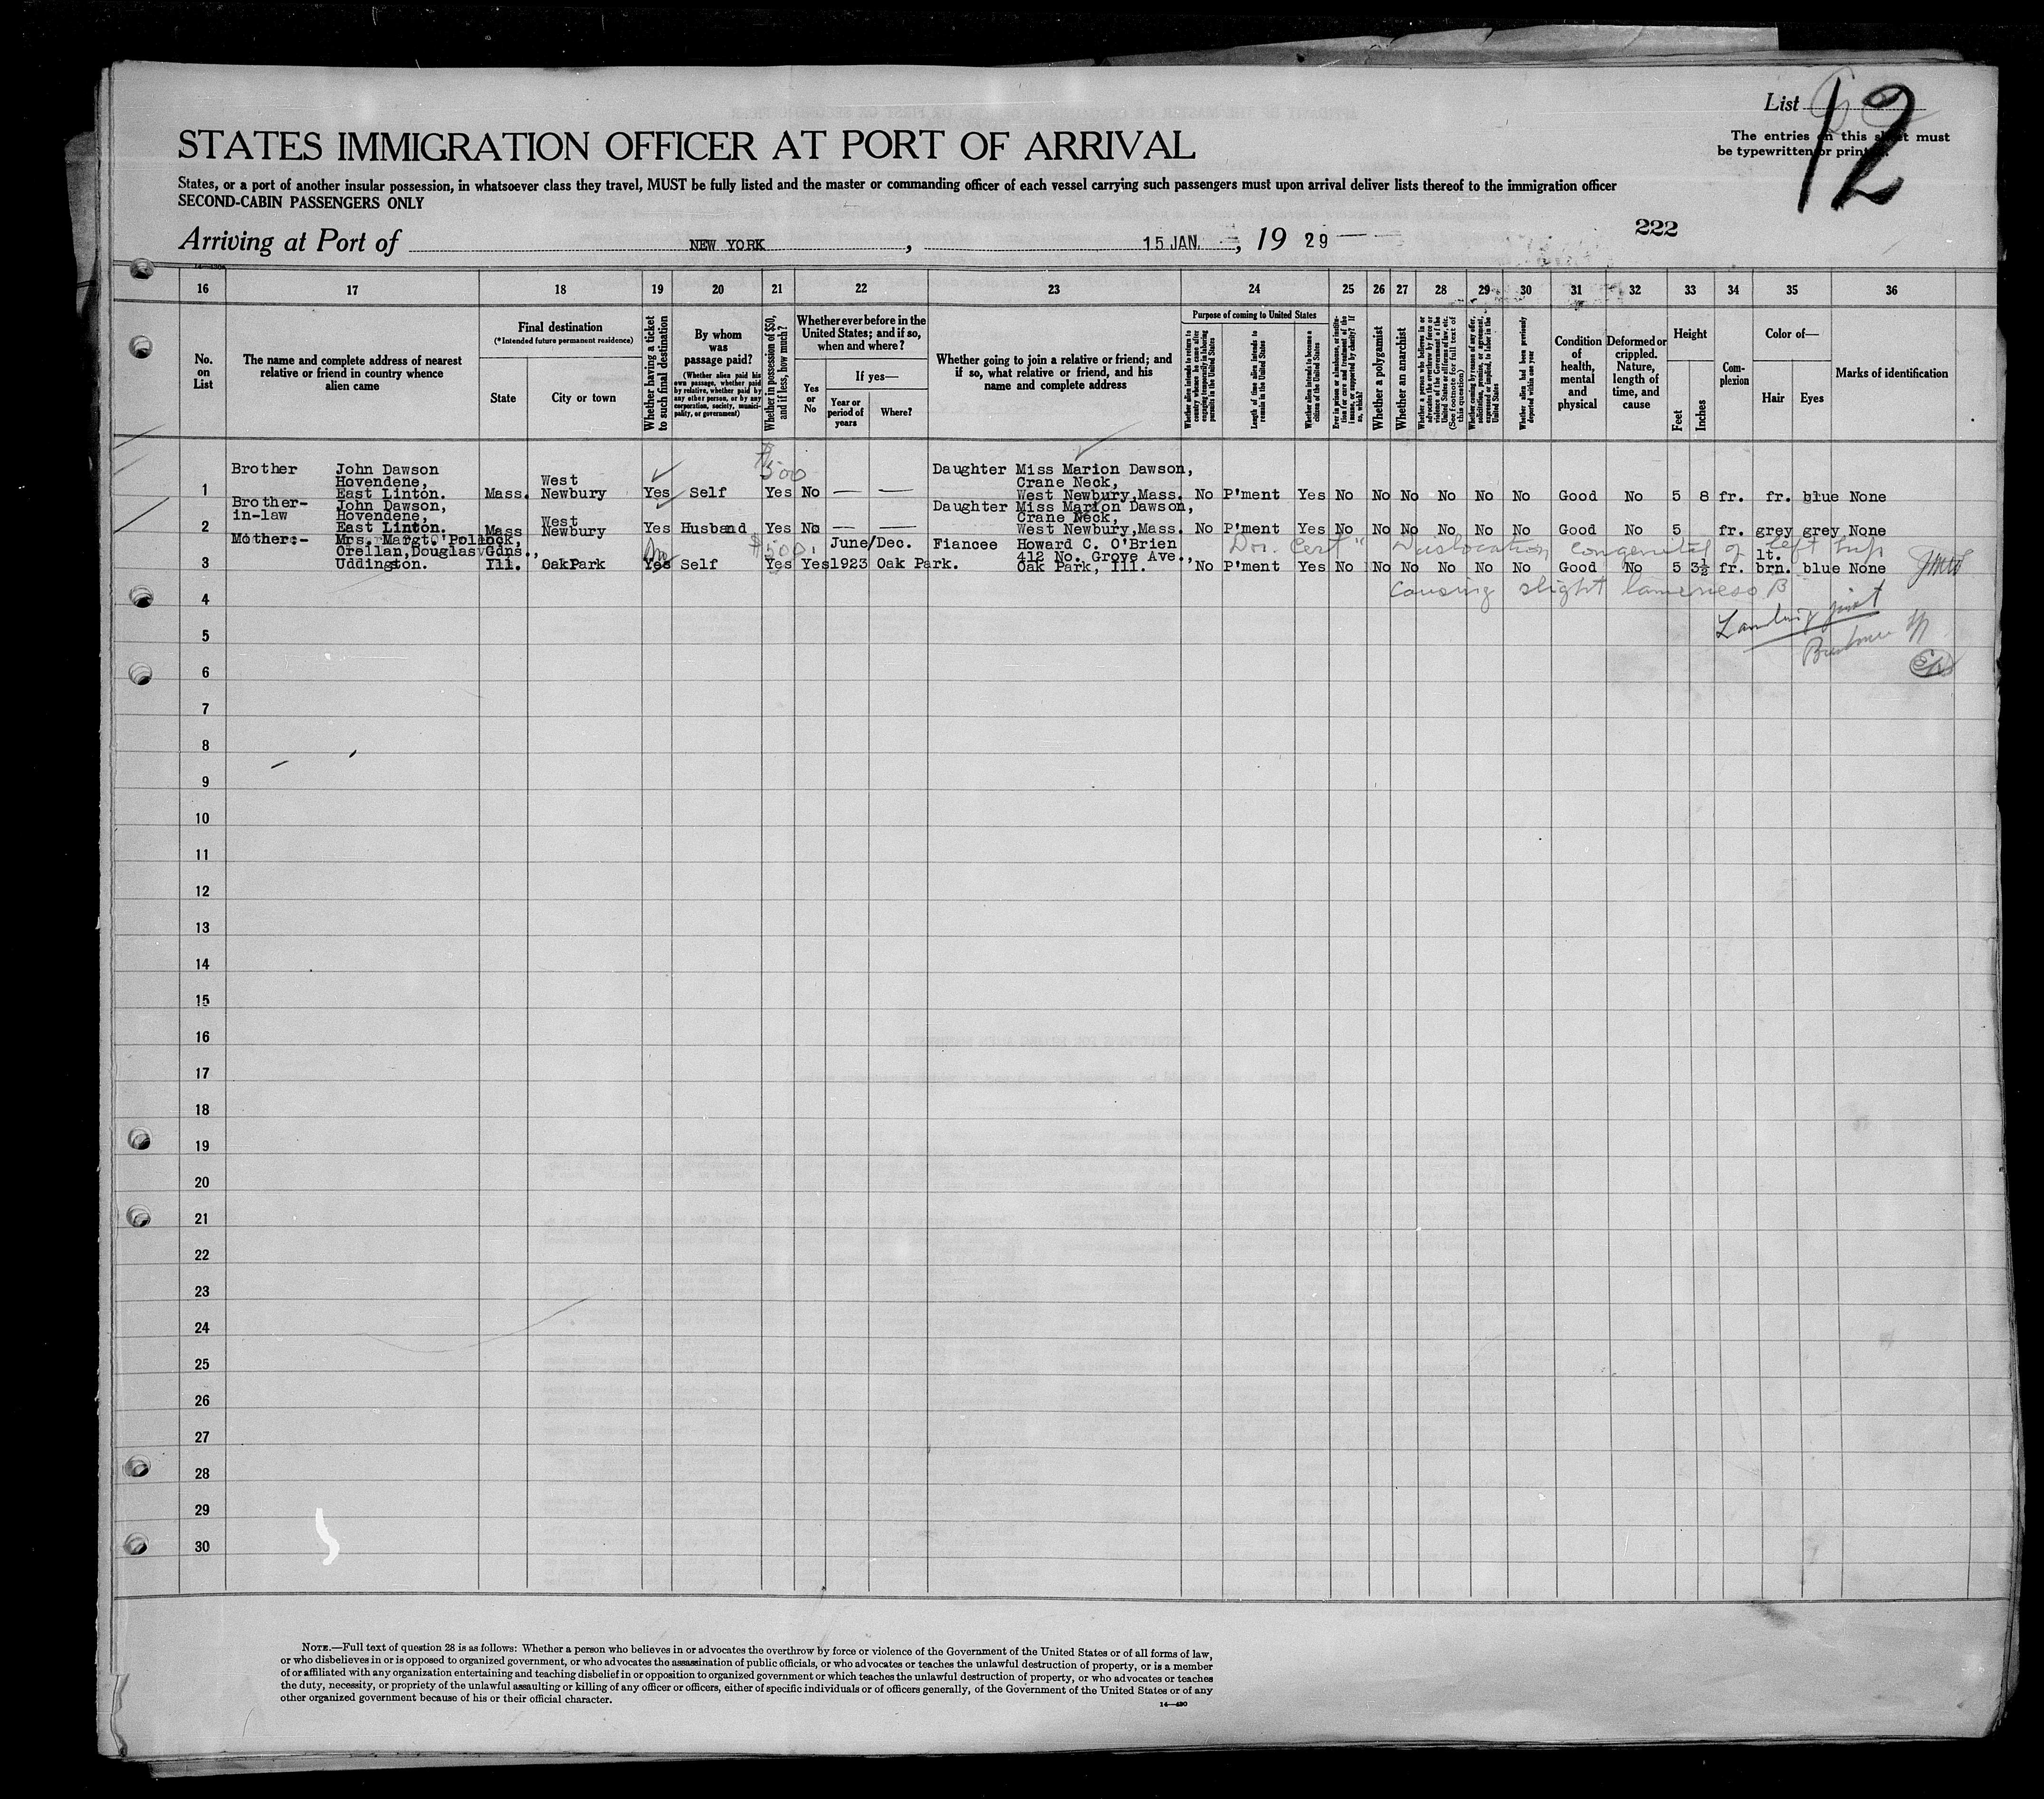 List 12
The entries on this sheet must
be typewritten or printed.
STATES IMMIGRATION OFFICER AT PORT OF ARRIVAL
States, or a port of another insular possession, in whatsoever class they travel, MUST be fully listed and the master or commanding officer of each vessel carrying such passengers must upon arrival deliver lists thereof to the immigration officer
SECOND-CABIN PASSENGERS ONLY
222
Arriving at Port of NEW YORK, 15 JAN., 1929
16 17 18 19 20 21 22 23 24 25 26 27 28 29 30 31 32 33 34 35 36
No. on List
The name and complete address of nearest relative or friend in country whence alien came
Final destination
(*Intended future permanent residence)
State
City or town
Whether having a ticket to such final destination
By whom was passage paid?
(Whether alien paid his own passage, whether paid by relative, whether paid by any other person, or by any corporation, society, municipality, or government)
Whether in possession of $50, and if less, how much?
Whether ever before in the United States; and if so, when and where?
Yes or No
If yes—
Year or period of years
Where?
Whether going to join a relative or friend; and if so, what relative or friend, and his name and complete address
Purpose of coming to United States
Whether alien intends to return to country whence he came after engaging temporarily in laboring pursuits in the United States
Length of time alien intends to remain in the United States
Whether alien intends to become a citizen of the United States
Ever in prison or almshouse, or institution for care and treatment of the insane, or supported by charity? If so, which?
Whether a polygamist
Whether an anarchist
Whether a person who believes in or advocates the overthrow by force or violence of the Government of the United States or all forms of law, etc. (See footnote for full text of this question)
Whether coming by reason of any offer, solicitation, promise, or agreement, expressed or implied, to labor in the United States
Whether alien had been previously deported within one year
Condition of health, mental and physical
Deformed or crippled. Nature, length of time, and cause
Height
Feet
Inches
Complexion
Color of—
Hair
Eyes
Marks of identification
$500
Brother John Dawson Daughter Miss Marion Dawson,
Hovendene, West Crane Neck,
1 East Linton. Mass. Newbury Yes Self Yes No — — West Newbury,Mass. No P'ment Yes No No No No No No Good No 5 8 fr. fr. blue None
Brother- John Dawson, Daughter Miss Marion Dawson,
in-law Hovendene, West Crane Neck,
2 East Linton. Mass Newbury Yes Husband Yes No — — West Newbury,Mass. No P'ment Yes No No No No No No Good No 5 fr. grey grey None
Mother:- Mrs. Margt. O'Pollock, No $500. June/Dec. Fiancee Howard C. O'Brien Dr. Cert" Dislocation congenital of left hip
Orellan,Douglas Gdns., 412 No. Grove Ave., lt.
3 Uddingston. Ill. OakPark Yes Self Yes Yes 1923 Oak Park. Oak Park, Ill. No P'ment Yes No No No No No No Good No 5 3½ fr. brn. blue None
causing slight lameness B
4
5
6
7
8
9
10
11
12
13
14
15
16
17
18
19
20
21
22
23
24
25
26
27
28
29
30
NOTE.—Full text of question 28 is as follows: Whether a person who believes in or advocates the overthrow by force or violence of the Government of the United States or of all forms of law,
or who disbelieves in or is opposed to organized government, or who advocates the assassination of public officials, or who advocates or teaches the unlawful destruction of property, or is a member
of or affiliated with any organization entertaining and teaching disbelief in or opposition to organized government or which teaches the unlawful destruction of property, or who advocates or teaches
the duty, necessity, or propriety of the unlawful assaulting or killing of any officer or officers, either of specific individuals or of officers generally, of the Government of the United States or of any
other organized government because of his or their official character.
14—430